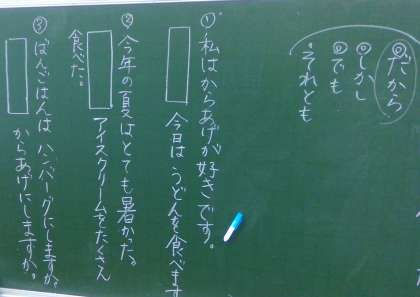 だから
しかし
でも
それとも
①私はからあげが好きです。
今日は うどんを食べます
②今年の夏はとても暑かった。
アイスクリームをたくさん
食べた。
③ばんごはんは ハンバーグにしますか?
からあげにしますか。